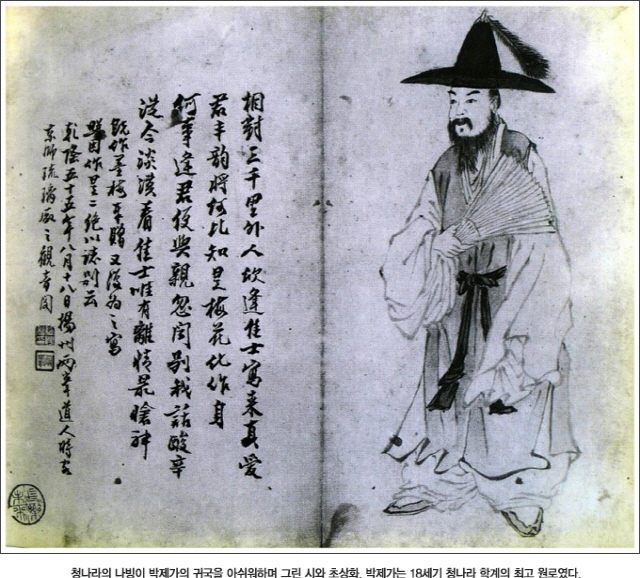 相對三千里外人欣逢佳士寫來真愛
君丰韵將何比知是梅花化作身
何事逢君便與親忽聞別我話酸辛
從今淡漠看佳士唯有離情最愴神
既作墨梅奉贈又復為之寫
照因作是二絕以誌別云
乾隆五十五年八月十八日揚州兩峯道人時客
京師琉璃廠之觀音閣
청나라의 나빙이 박제가의 귀국을 아쉬워하며 그린 시와 초상화. 박제가는 18세기 청나라 학계의 최고 원로였다.